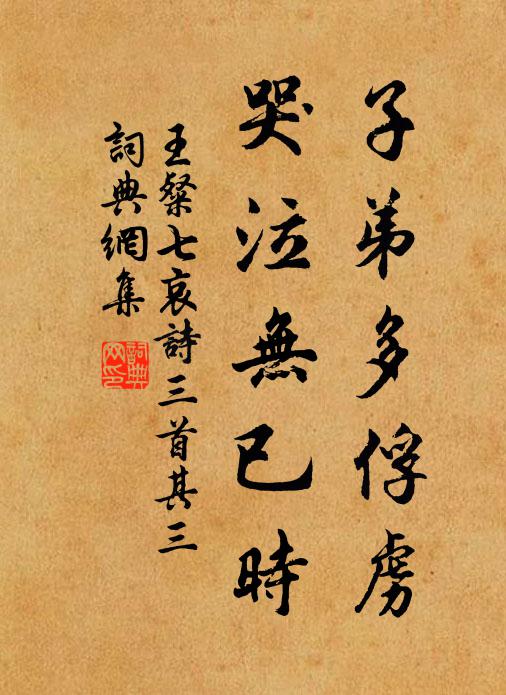 子弟多俘虜
哭泣無已時
王粲七哀詩三首其三
詞典網集
詞典網印